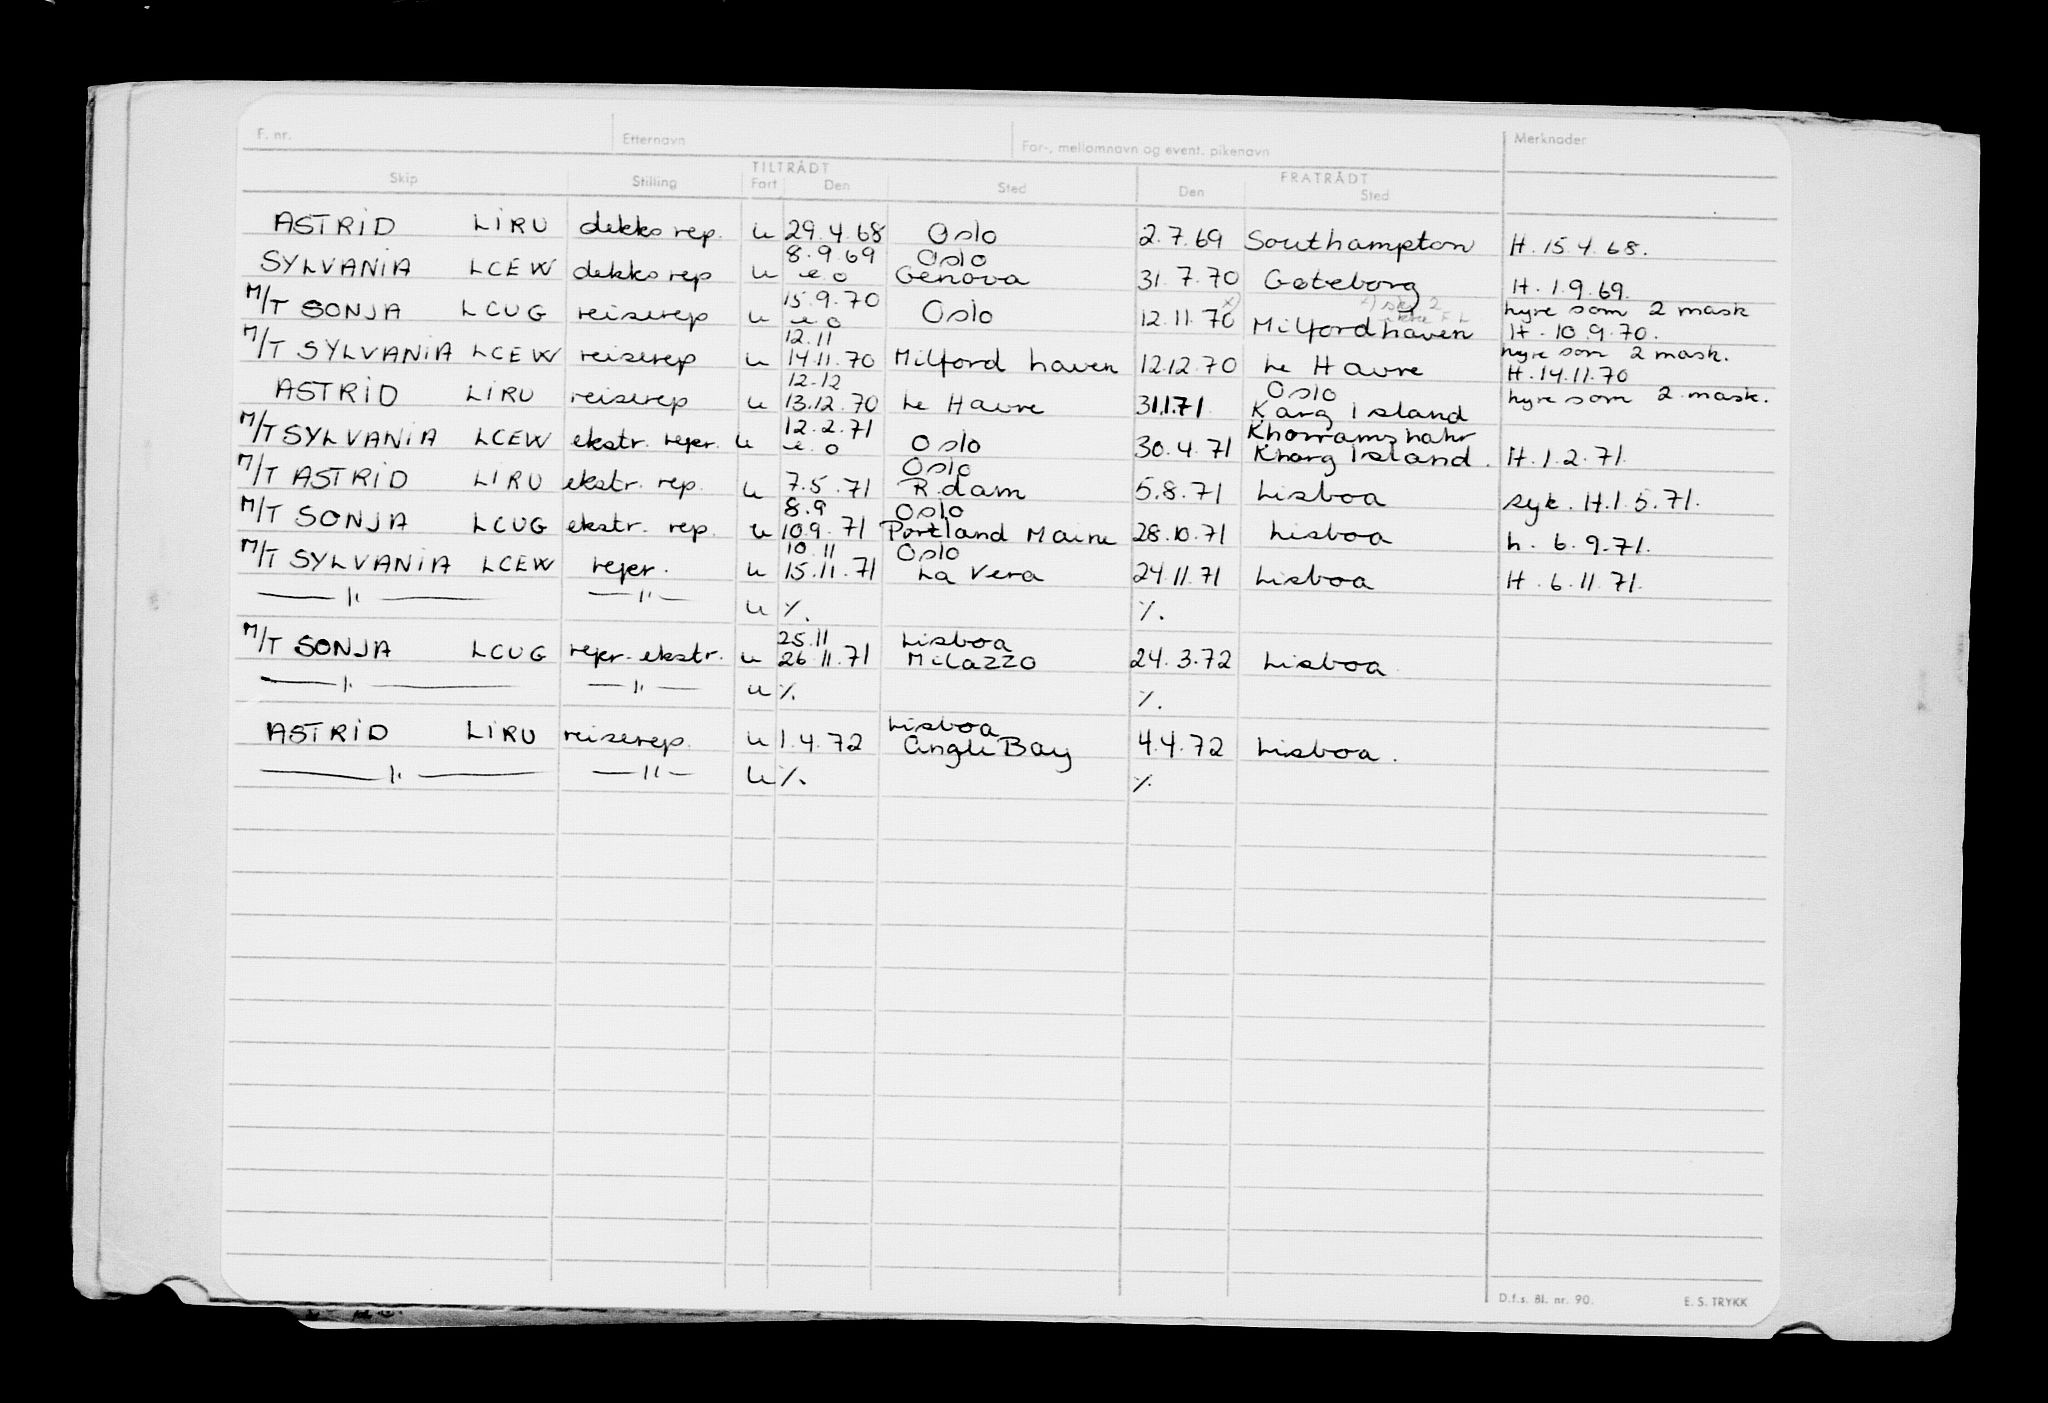 F. nr. Etternavn For-, mellomnavn og event. pikenavn Merknader
TILTRÅDT FRATRÅDT
Skip Stilling Fart Den Sted Den Sted
ASTRID LIRU dekks rep. u 29.4.68 Oslo 2.7.69 Southampton H. 15.4.68.
8.9.69 Oslo
SYLVANIA LCEW dekks rep u e o Genova 31.7.70 Gøteborg H. 1.9.69.
15.9.70 x) hyre som 2 mask
M/T SONJA LCUG reiserep u e o Oslo 12.11.70 Milfordhaven H. 10.9.70.
12.11 hyre som 2 mask.
M/T SYLVANIA LCEW reiserep u 14.11.70 Milford haven 12.12.70 Le Havre H. 14.11.70
12.12 Oslo hyre som 2. mask.
ASTRID LIRU reiserep u 13.12.70 Le Havre 31.1.71 Karg Island
12.2.71 Khorramshahr
M/T SYLVANIA LCEW ekstr. reper. u e. o Oslo 30.4.71 Kharg Island. H. 1.2.71.
Oslo
M/T ASTRID LIRU ekstr. rep. u 7.5.71 R.dam 5.8.71 Lisboa syk. H. 1.5.71.
8.9 Oslo
M/T SONJA LCUG ekstr. rep. u 10.9.71 Portland Maine 28.10.71 Lisboa h. 6.9.71.
10.11 Oslo
M/T SYLVANIA LCEW reper. u 15.11.71 La Vera 24.11.71 Lisboa H. 6.11.71.
—— " —— — " — u %. %.
25.11 Lisboa
M/T SONJA LCUG reper. ekstr. u 26.11.71 Milazzo 24.3.72 Lisboa.
—— " —— — " — u %. %.
Lisboa
ASTRID LIRU reiserep. u 1.4.72 Angle Bay 4.4.72 Lisboa.
—— " —— — " — u %. %.
D.f.s. Bl. nr. 90. E. S. TRYKK